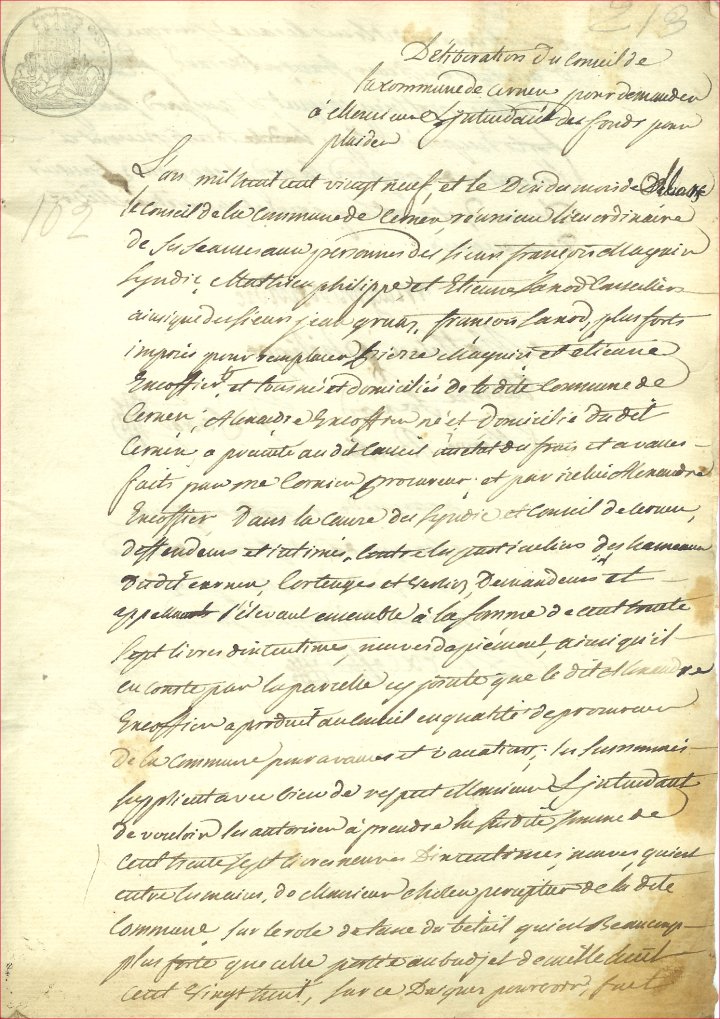 213
Déliberation du Conseil de
la commune de Cernex pour demander
à Monsieur L'jntendant des fonds pour
plaider
102
L'an mil huit cent vingt neuf et le Dix du mois de
le Conseil de la Commune de Cernex réuni au lieu ordinaire
de ses seances aux personnes des sieurs françois Magnin
Syndic, Mathieu philippe et Etienne Lanod Conseliers
ainsique des sieurs jean françois Lanod, plus forts
imposés pour remplacer pierre Magnin et etienne
Encoffier et tous nés et domiciliés de la dite Commune de
Cernex, Alexandre Encoffier né et Domicilié du dit
Cernex, a presenté au dit Conseil des frais et avances
faits par me Cornier procureur et par icelui Alexandre
Encoffier Dans la Cause des Syndic et Conseil de Cernex,
deffendeurs et intimés, Contre les particuliers des hameaux
du dit Cernex, Demandeurs et
appellants s'élevant ensemble à la somme de cent trente
sept livres dix centimes, neuves de piément, ainsi qu'il
en conste par la parcelle cy jointe que le dit Alexandre
Encoffier a produit au Conseil en qualité de procureur
de la Commune pour avances et vacations; les susnommés
supplient avec bien de respect Monsieur L'jntendant
de vouloir les autoriser à prendre la susdite somme de
Cent trente sept livres neuves Dix centimes neuves qui est
entre les mains, de Monsieur percepteur de la dite
Commune, sur le role de taxe du betail qui est Beaucoup
plus forte que celle portée au budjet de mille huit
cent vingt huit, sur ce